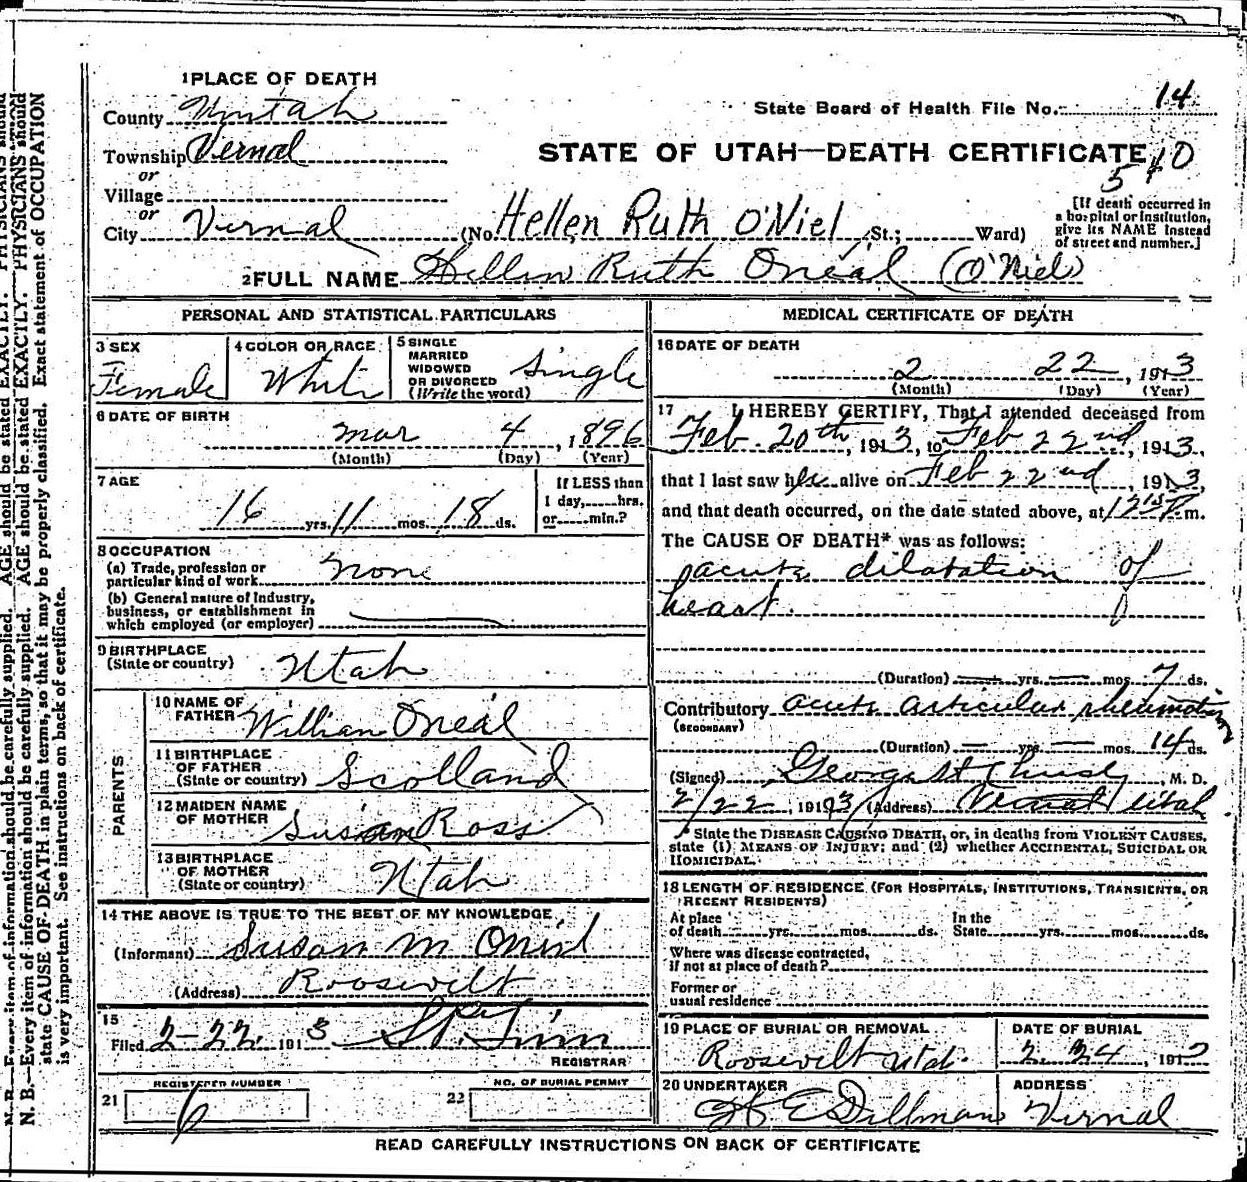 1 PLACE OF DEATH
County Uintah
State Board of Health File No. 14
Township Vernal
STATE OF UTAH—DEATH CERTIFICATE
510
or
Village
or
City Vernal (No. Hellen Ruth O'Niel St.; Ward)
[If death occurred in
a hospital or institution,
give its NAME instead
of street and number.]
2 FULL NAME Hellen Ruth Oneal (O'Niel)
PERSONAL AND STATISTICAL PARTICULARS
3 SEX
Female
4 COLOR OR RACE
White
5 SINGLE
MARRIED
WIDOWED
OR DIVORCED
(Write the word)
Single
6 DATE OF BIRTH
Mar 4, 1896
(Month) (Day) (Year)
7 AGE
16 yrs. 11 mos. 18 ds.
If LESS than
1 day, hrs.
or min.?
8 OCCUPATION
(a) Trade, profession or
particular kind of work none
(b) General nature of Industry,
business, or establishment in
which employed (or employer)
9 BIRTHPLACE
(State or country) Utah
PARENTS
10 NAME OF
FATHER William Oneal
11 BIRTHPLACE
OF FATHER
(State or country) Scotland
12 MAIDEN NAME
OF MOTHER Susan Ross
13 BIRTHPLACE
OF MOTHER
(State or country) Utah
14 THE ABOVE IS TRUE TO THE BEST OF MY KNOWLEDGE
(Informant) Susan M Oniel
(Address) Roosevelt
15
Filed 2-22, 1913
REGISTRAR
REGISTERED NUMBER
21 6
NO. OF BURIAL PERMIT
22
MEDICAL CERTIFICATE OF DEATH
16 DATE OF DEATH
2 22, 1913
(Month) (Day) (Year)
17 I HEREBY CERTIFY, That I attended deceased from
Feb. 20th, 1913, to Feb 22nd, 1913,
that I last saw her alive on Feb 22nd, 1913,
and that death occurred, on the date stated above, at 12 15 P m.
The CAUSE OF DEATH* was as follows:
acute dilatation of
heart.
(Duration) yrs. mos. 7 ds.
Contributory acute articular rheumatism
(SECONDARY)
(Duration) yrs. mos. 14 ds.
(Signed) , M. D.
2/22, 1913 (Address) Vernal Utah
* State the DISEASE CAUSING DEATH, or, in deaths from VIOLENT CAUSES,
state (1) MEANS OF INJURY; and (2) whether ACCIDENTAL, SUICIDAL OR
HOMICIDAL.
18 LENGTH OF RESIDENCE (FOR HOSPITALS, INSTITUTIONS, TRANSIENTS, OR
RECENT RESIDENTS)
At place
of death yrs. mos. ds.
In the
State yrs. mos. ds.
Where was disease contracted,
if not at place of death?
Former or
usual residence
19 PLACE OF BURIAL OR REMOVAL
Roosevelt Utah.
DATE OF BURIAL
2. 24, 191
20 UNDERTAKER
E Dillman
ADDRESS
Vernal
READ CAREFULLY INSTRUCTIONS ON BACK OF CERTIFICATE
N. B.—Every item of information should be carefully supplied. AGE should be stated EXACTLY. PHYSICIANS should
state CAUSE OF DEATH in plain terms, so that it may be properly classified. Exact statement of OCCUPATION
is very important. See instructions on back of certificate.